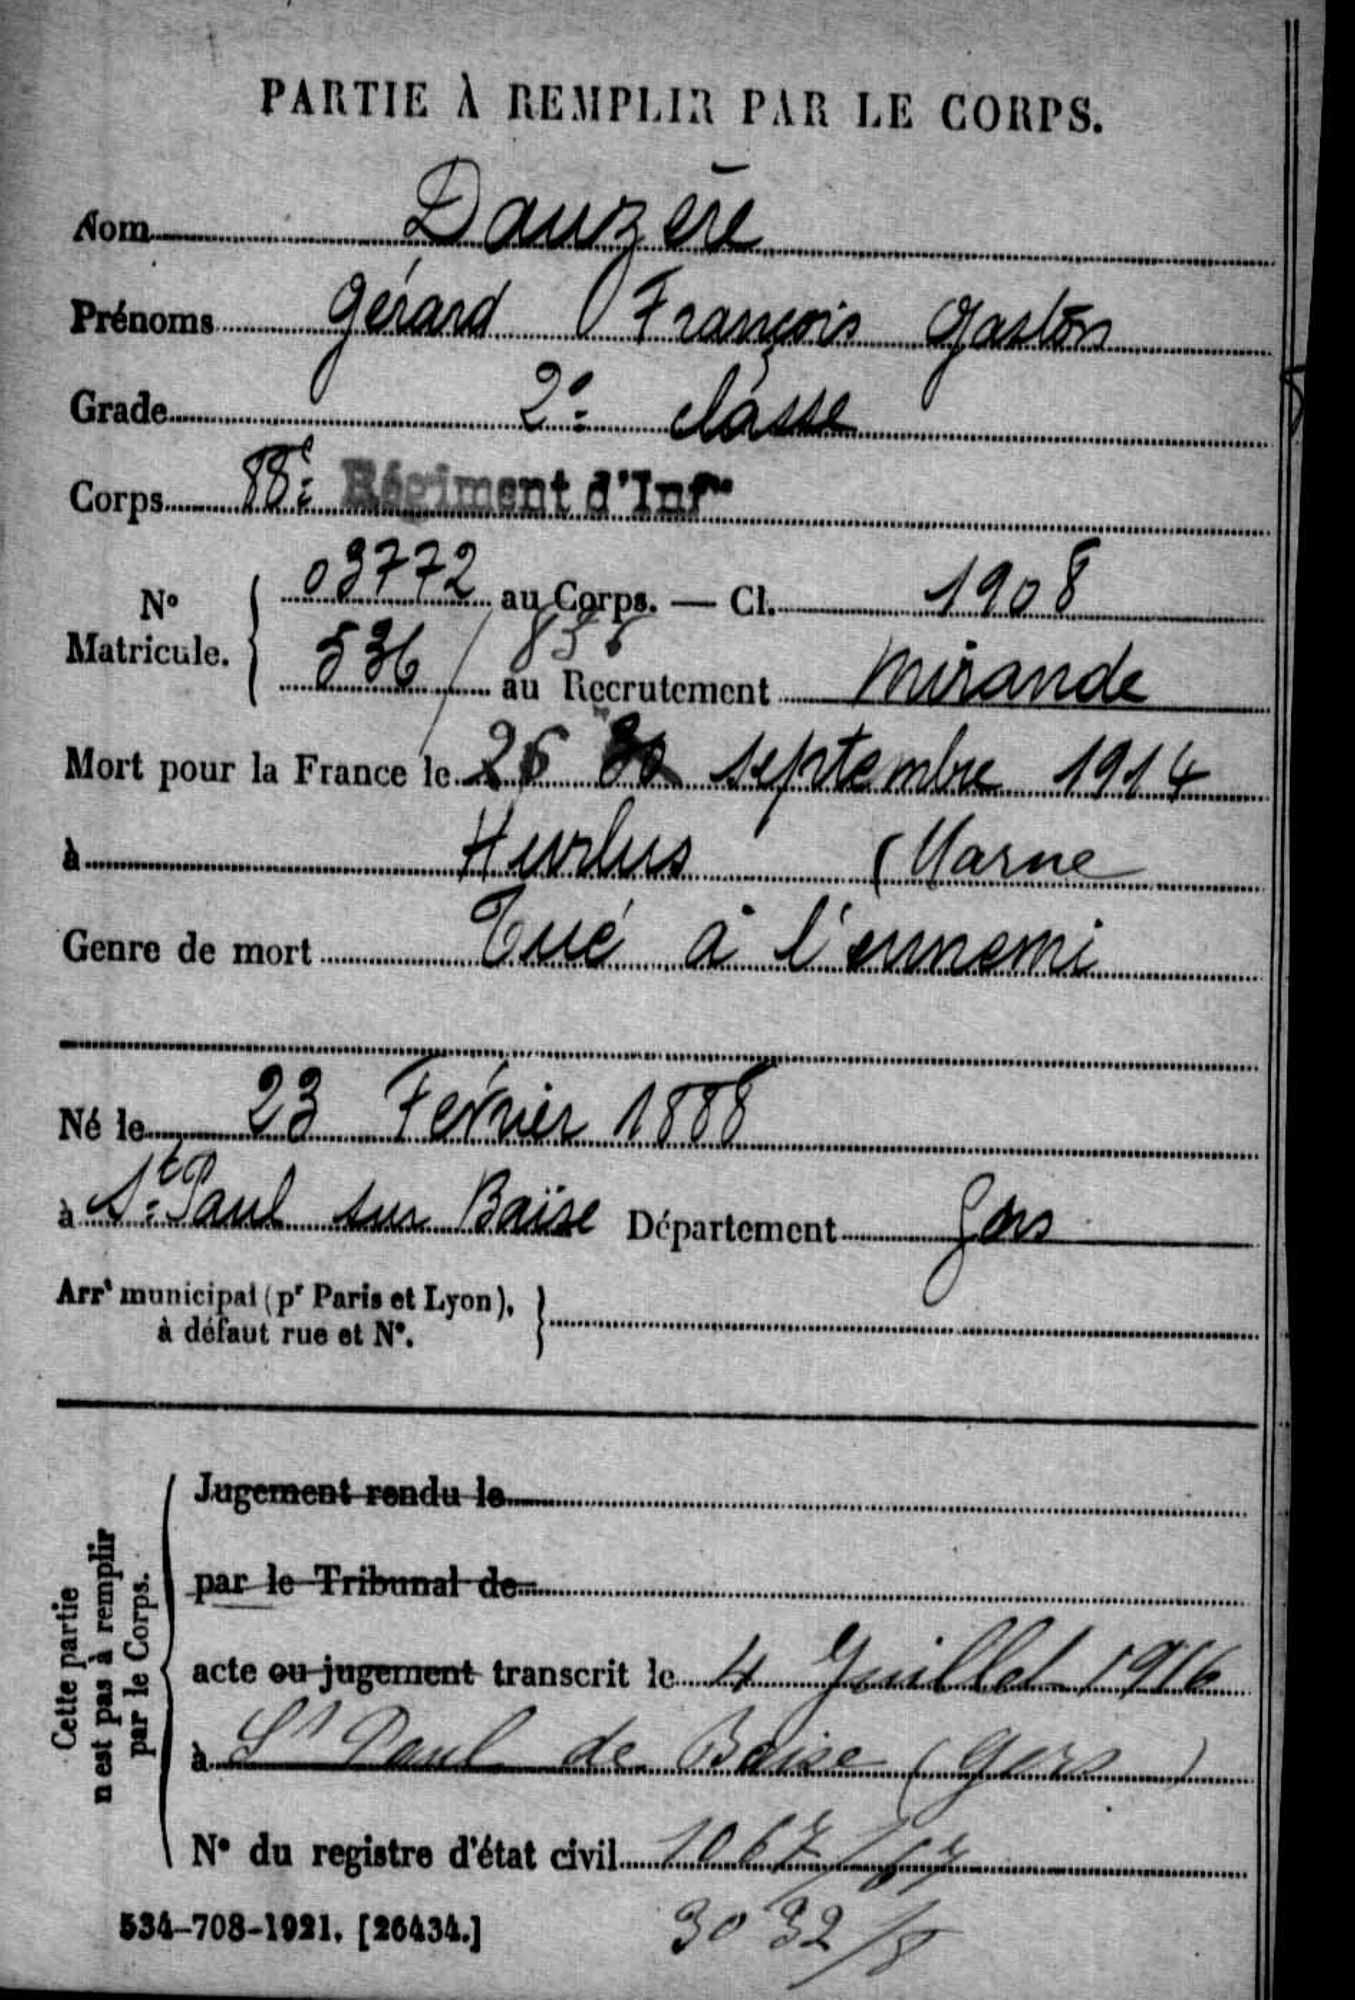 PARTIE À REMPLIR PAR LE CORPS.
Nom Dauzère
Prénoms Gérard François Gaston
Grade 2e classe
Corps 88e Régiment d'Infie
No Matricule. 03772 au Corps. — Cl. 1908
536 / 858 au Recrutement Mirande
Mort pour la France le 26 30 septembre 1914
à Hurlus (Marne
Genre de mort Tué à l'ennemi
Né le 23 Février 1888
à St Paul sur Baïse Département Gers
Arrt municipal (pr Paris et Lyon),
à défaut rue et No.
Cette partie
n'est pas à remplir
par le Corps.
Jugement rendu le
par le Tribunal de
acte ou jugement transcrit le 4 Juillet 1916
à St Paul de Baise (Gers)
No du registre d'état civil 1067/67
534-708-1921. [26434.]
3032/8